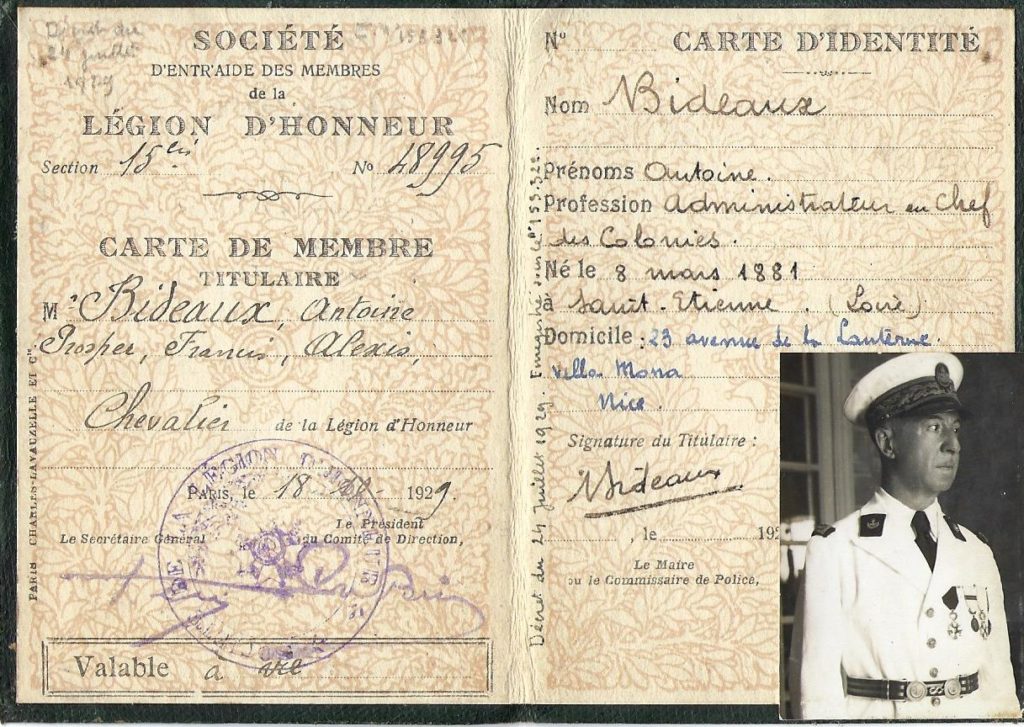 Décret du
24 juillet
1929
SOCIÉTÉ
D'ENTR'AIDE DES MEMBRES
de la
LÉGION D'HONNEUR
Section 15 N° 48995
CARTE DE MEMBRE
TITULAIRE
M r Bideaux, Antoine
Prosper, Francis, Alexis,
Chevalier de la Légion d'Honneur
PARIS, le 18 1929.
Le Secrétaire Général
Le Président
du Comité de Direction,
DE LA LÉGION D'HONNEUR
Valable à vie
PARIS CHARLES-LAVAUZELLE ET Cie
Décret du 24 Juillet 1929. Enregistré sous le n° 153.320.
N° CARTE D'IDENTITÉ
Nom Bideaux
Prénoms Antoine.
Profession Administrateur en Chef
des Colonies.
Né le 8 mars 1881
à Saint-Etienne. (Loire)
Domicile : 23 avenue de la Lanterne.
Villa Mona
Nice.
Signature du Titulaire :
ABideaux
, le 192
Le Maire
ou le Commissaire de Police,